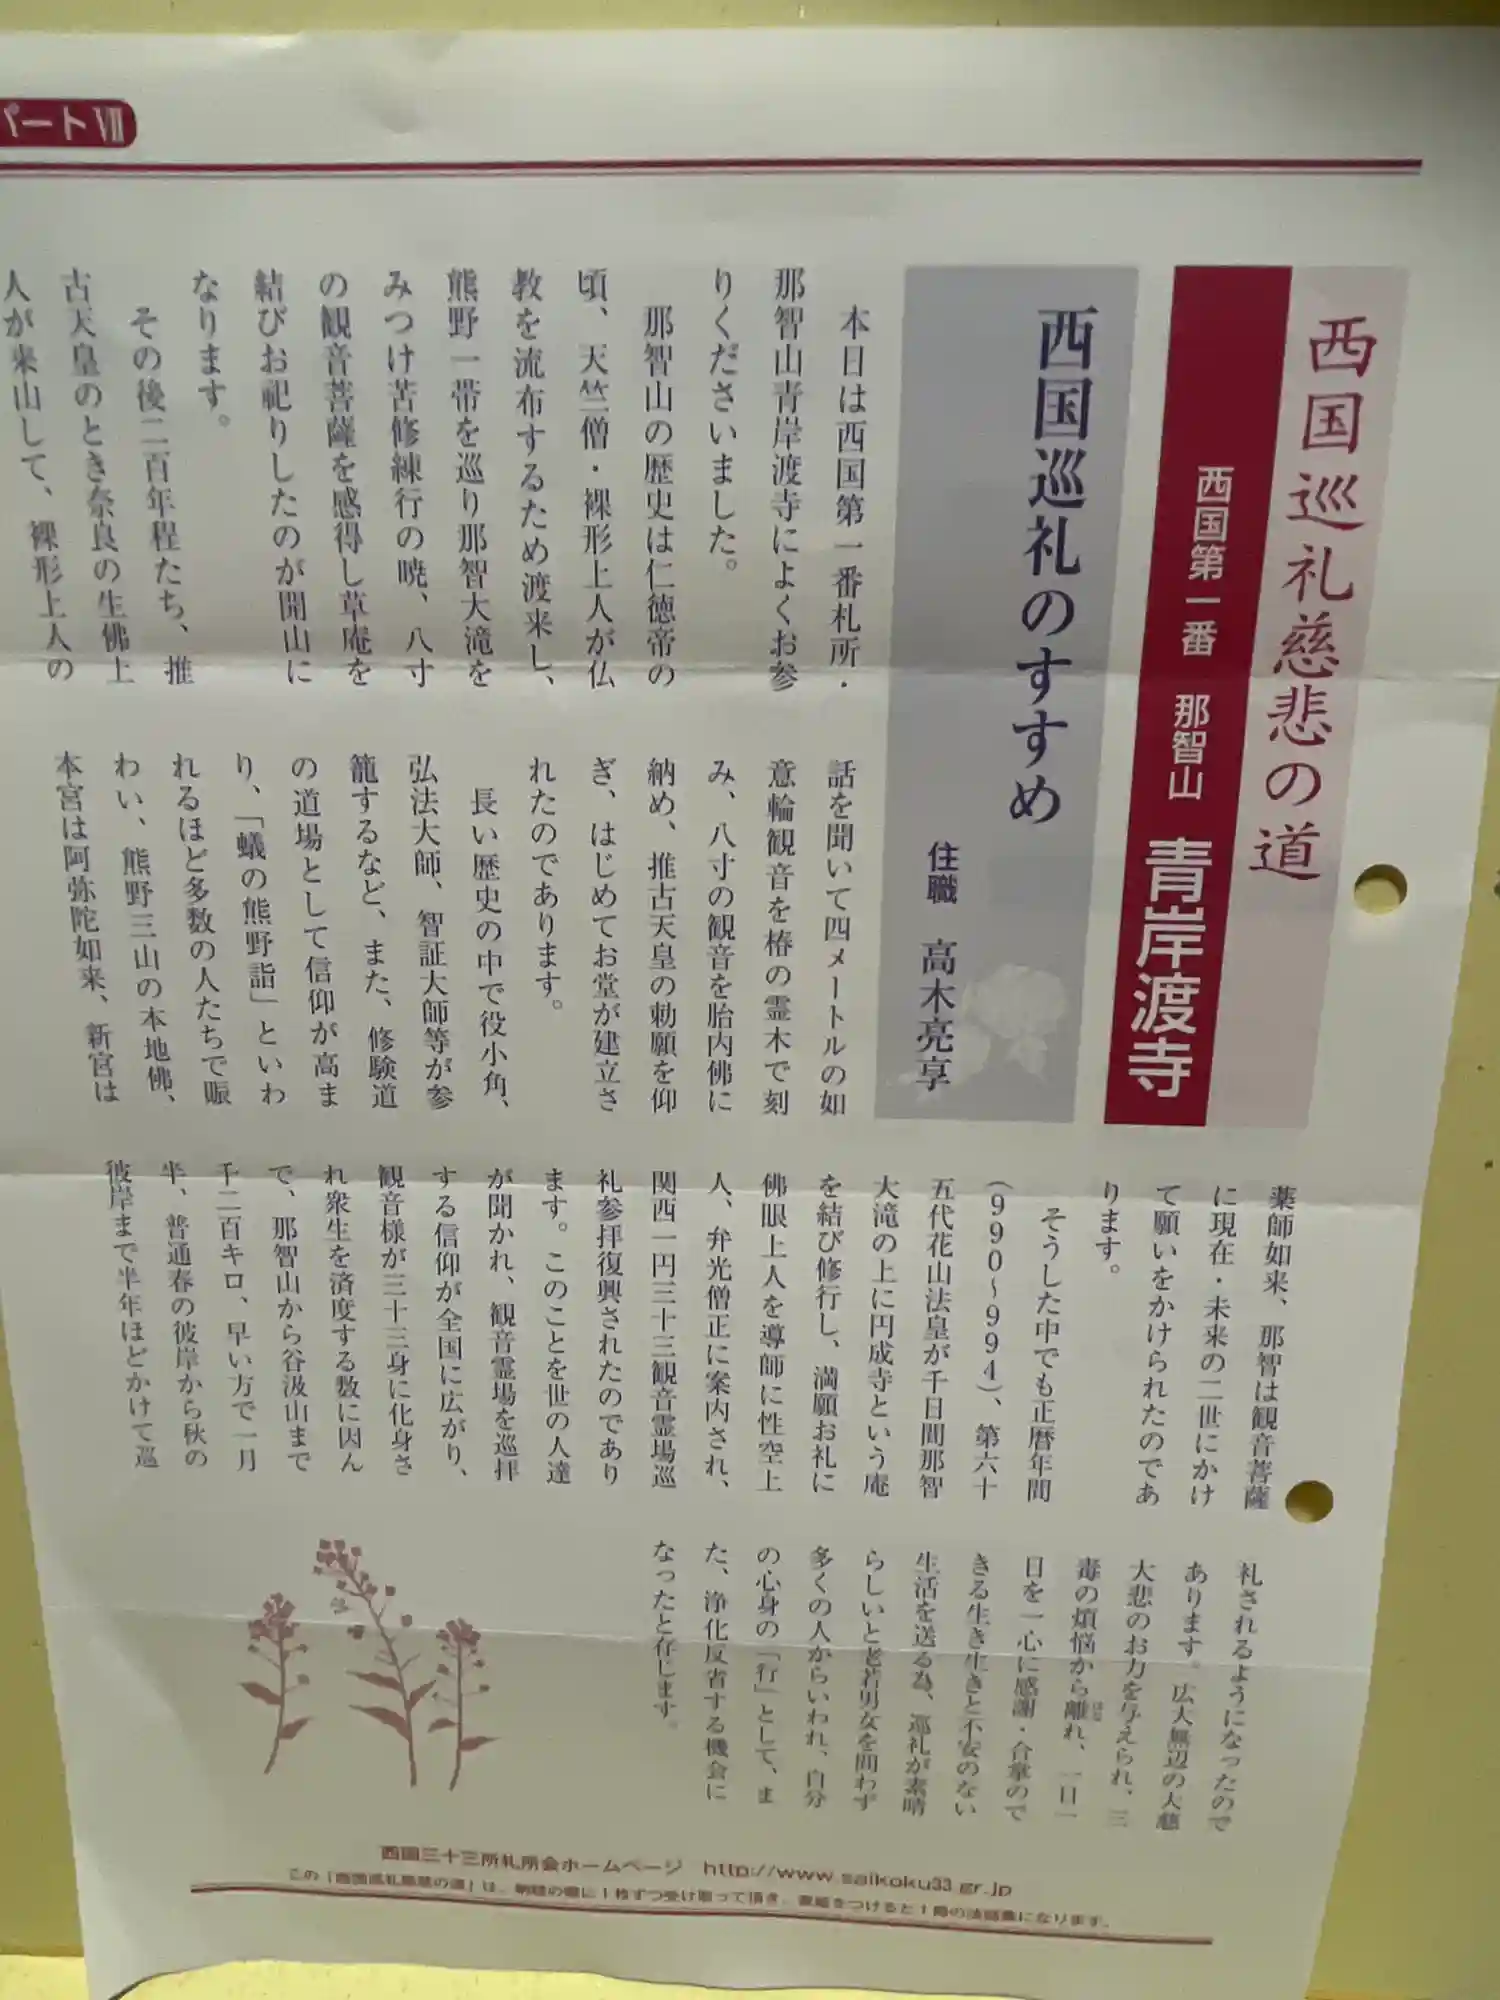 パートⅧ
西国巡礼慈悲の道
西国第一番 那智山 青岸渡寺
西国巡礼のすすめ
住職 高木亮享
本日は西国第一番札所・
那智山青岸渡寺によくお参
りくださいました。
那智山の歴史は仁徳帝の
頃、天竺僧・裸形上人が仏
教を流布するため渡来し、
熊野一帯を巡り那智大滝を
みつけ苦修練行の暁、八寸
の観音菩薩を感得し草庵を
結びお祀りしたのが開山に
なります。
その後二百年程たち、推
古天皇のとき奈良の生佛上
人が来山して、裸形上人の
話を聞いて四メートルの如
意輪観音を椿の霊木で刻
み、八寸の観音を胎内佛に
納め、推古天皇の勅願を仰
ぎ、はじめてお堂が建立さ
れたのであります。
長い歴史の中で役小角、
弘法大師、智証大師等が参
籠するなど、また、修験道
の道場として信仰が高ま
り、「蟻の熊野詣」といわ
れるほど多数の人たちで賑
わい、熊野三山の本地佛、
本宮は阿弥陀如来、新宮は
薬師如来、那智は観音菩薩
に現在・未来の二世にかけ
て願いをかけられたのであ
ります。
そうした中でも正暦年間
(990〜994)、第六十
五代花山法皇が千日間那智
大滝の上に円成寺という庵
を結び修行し、満願お礼に
佛眼上人を導師に性空上
人、弁光僧正に案内され、
関西一円三十三観音霊場巡
礼参拝復興されたのであり
ます。このことを世の人達
が聞かれ、観音霊場を巡拝
する信仰が全国に広がり、
観音様が三十三身に化身さ
れ衆生を済度する数に因ん
で、那智山から谷汲山まで
千二百キロ、早い方で一月
半、普通春の彼岸から秋の
彼岸まで半年ほどかけて巡
礼されるようになったので
あります。広大無辺の大慈
大悲のお力を与えられ、三
毒の煩悩から離れ、一日一
日を一心に感謝・合掌ので
きる生き生きと不安のない
生活を送る為、巡礼が素晴
らしいと老若男女を問わず
多くの人からいわれ、自分
の心身の「行」として、ま
た、浄化反省する機会に
なったと存じます。
西国三十三所札所会ホームページ http://www.saikoku33.gr.jp
この「西国巡礼慈悲の道」は、納経の際に1枚ずつ受け取って頂き、表紙をつけると1冊の法話集になります。